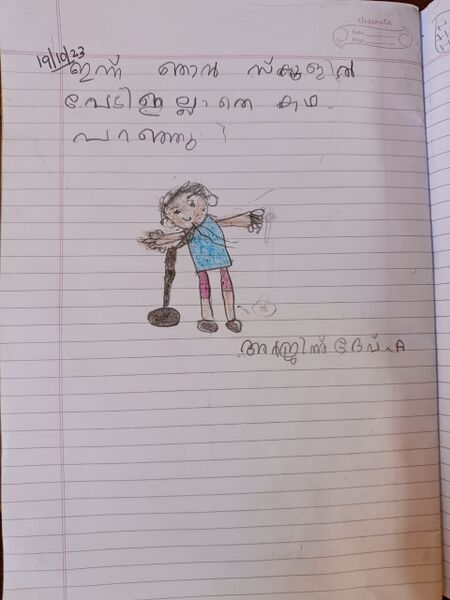 classmate
Date
Page
19/10/23
ഇന്ന് ഞാൻ സ്കൂളിൽ
പേടി ഇല്ലാതെ കഥ
പറഞ്ഞു